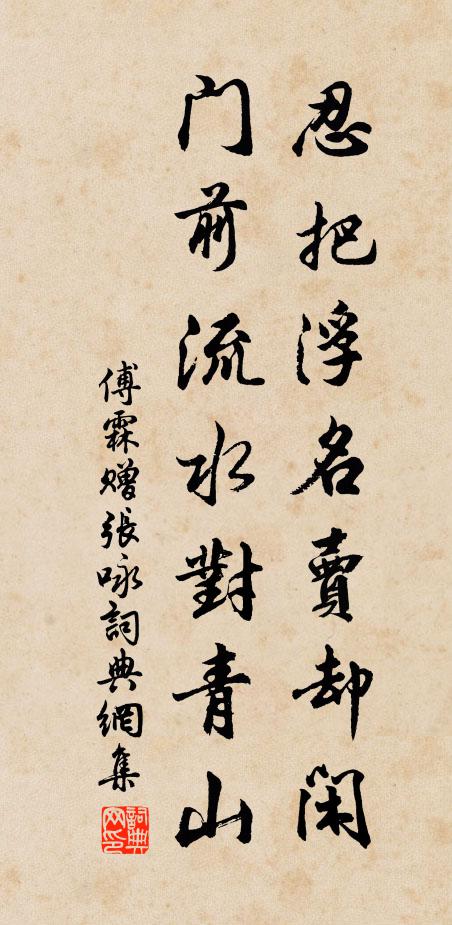 忍把浮名賣却閑
門前流水對青山
傅霖贈張咏詞典網集
詞典網印